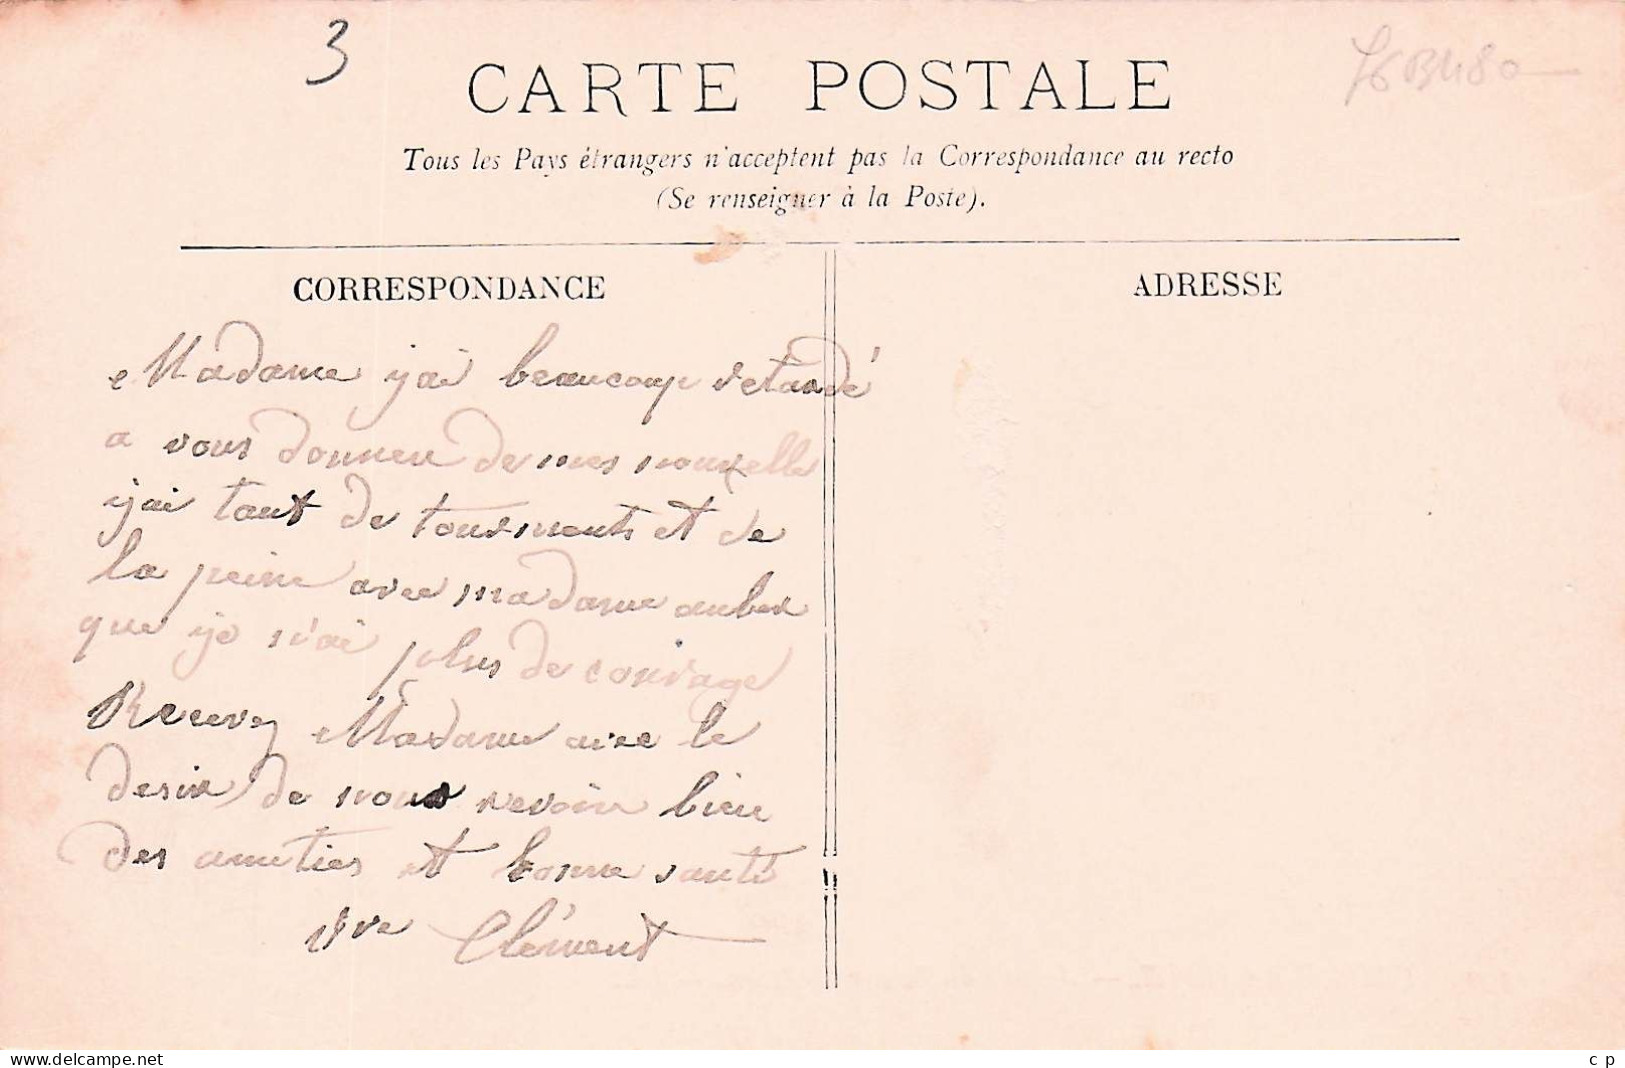 3
CARTE POSTALE
Tous les Pays étrangers n'acceptent pas la Correspondance au recto
(Se renseigner à la Poste).
CORRESPONDANCE
ADRESSE
Madame j'ai beaucoup retardé
a vous donner de mes nouvelle
j'ai tant de tourments et de
la peine avec madame auber
que je n'ai plus de courage
Recevez Madame avec le
desir de nous revoir bien
des amities et bonne santé
Vve Clément
www.delcampe.net
c p